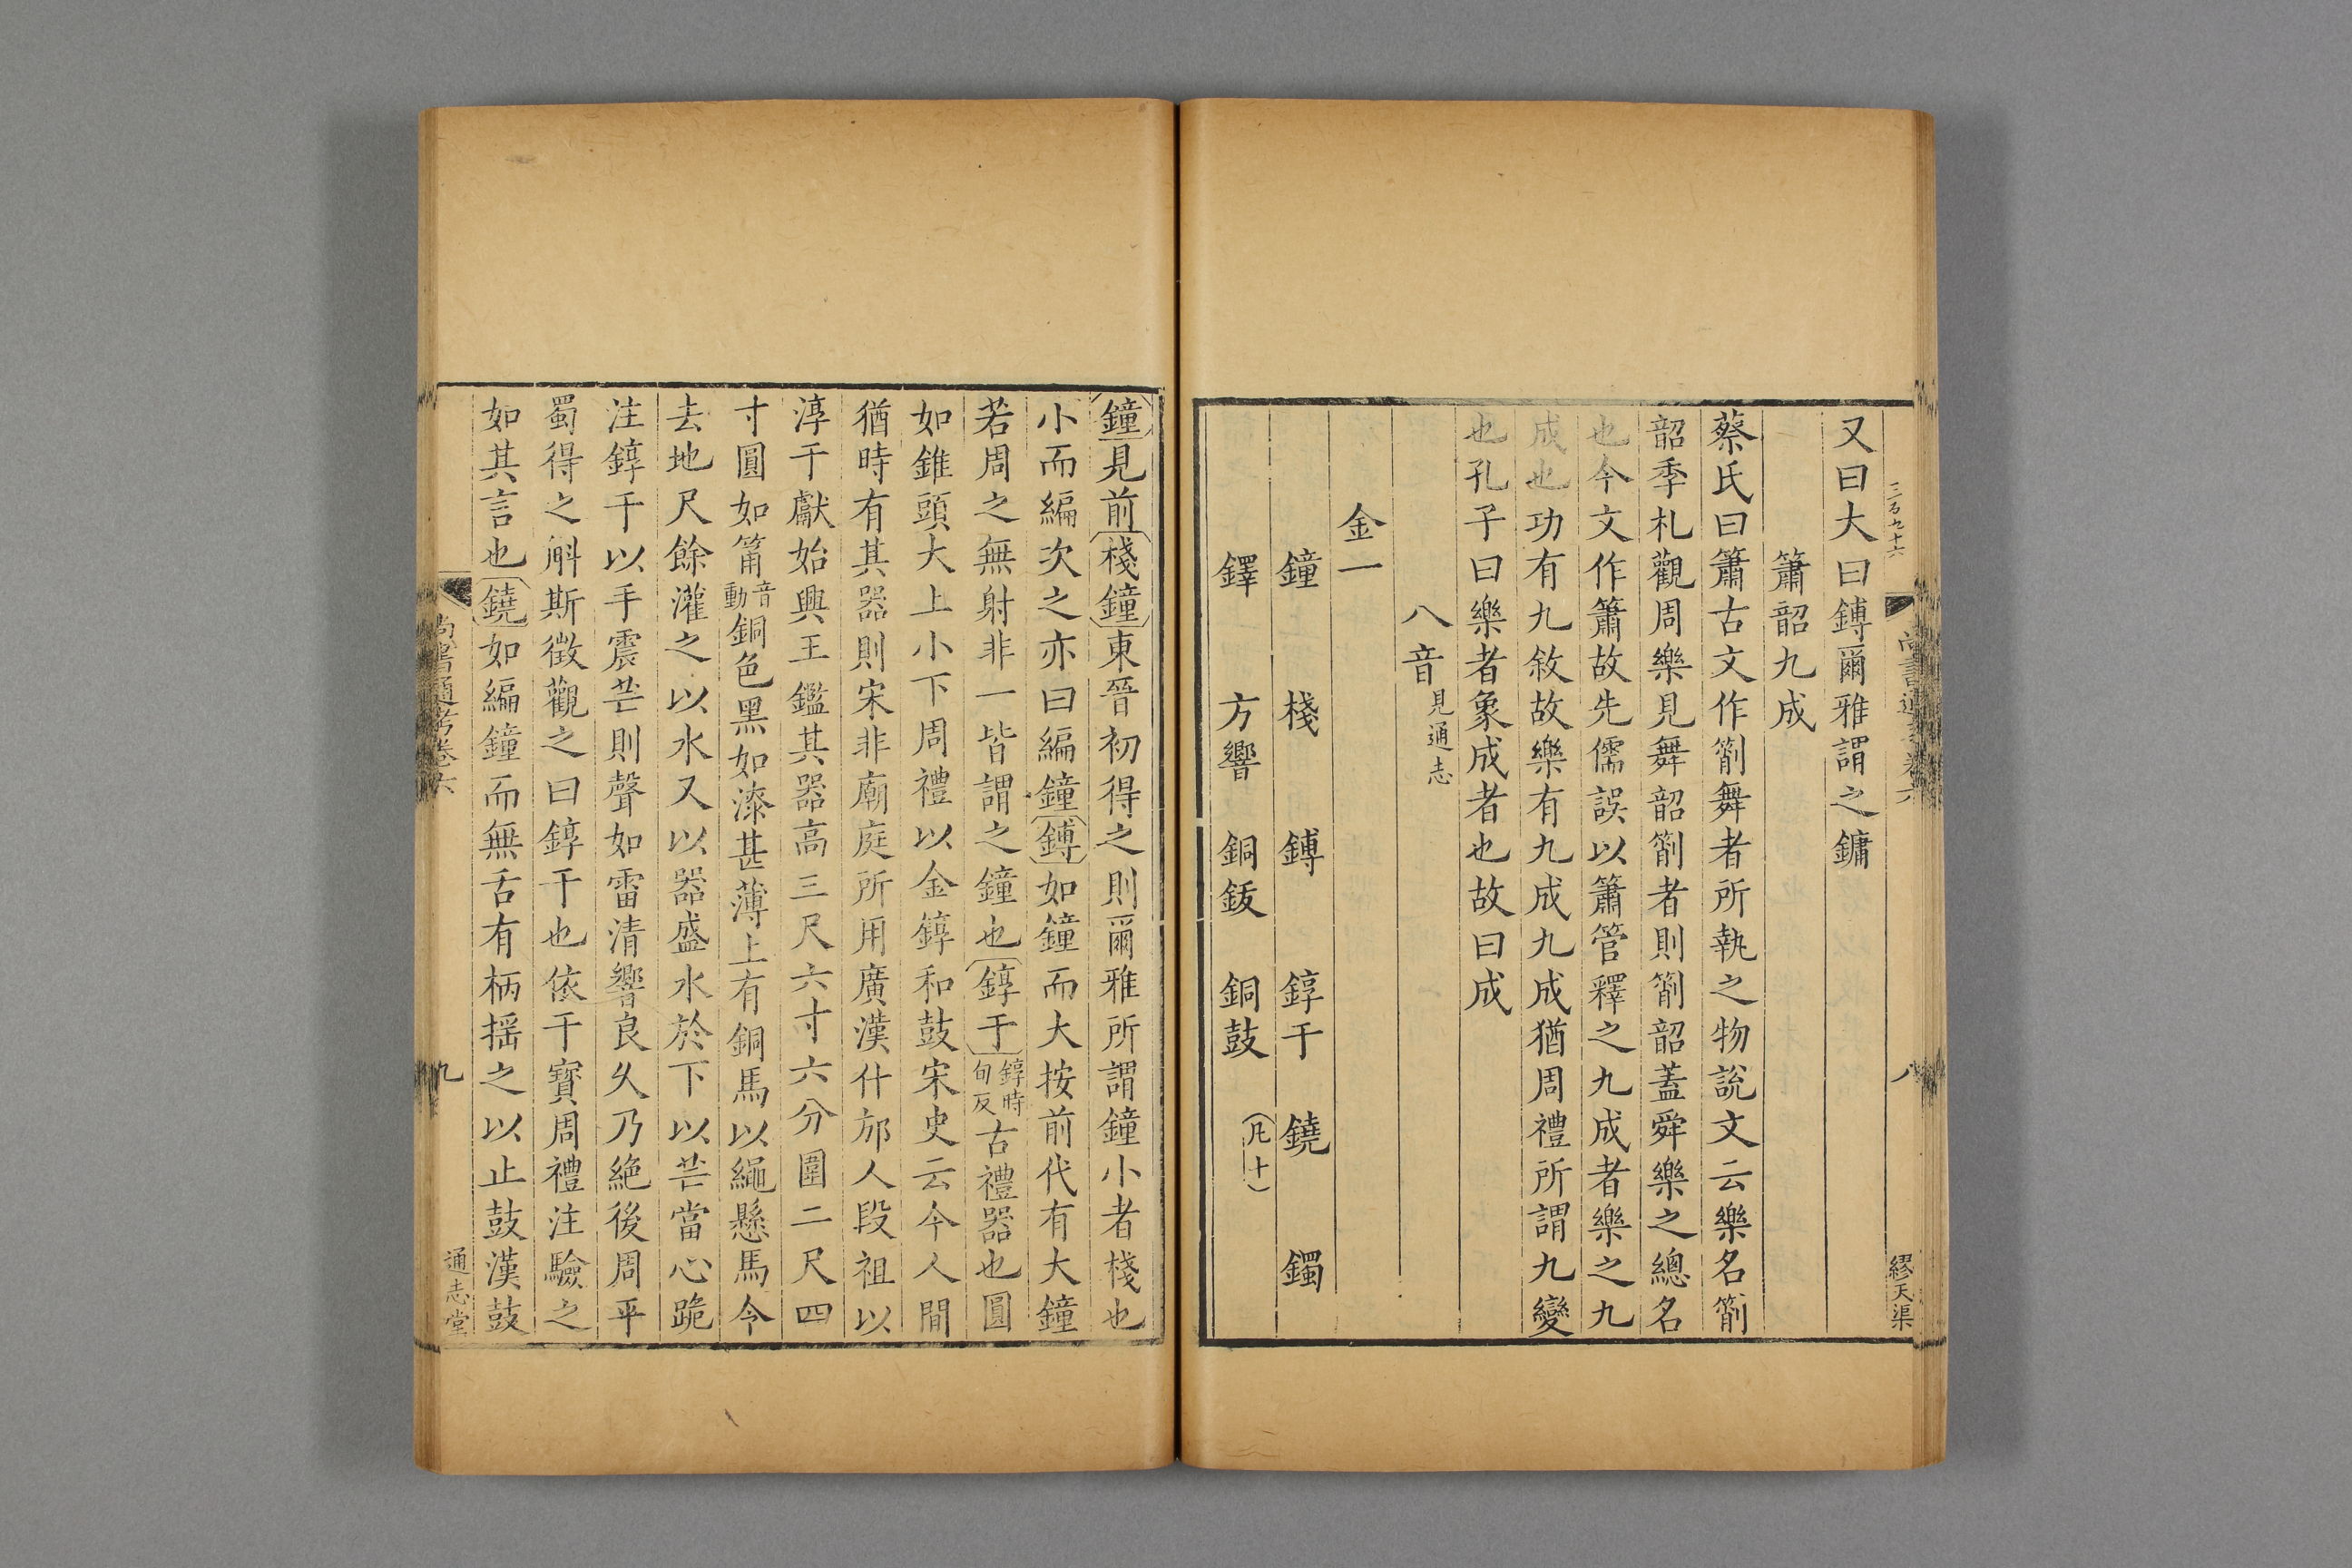 三百九十六
八
繆天渠
又曰大曰鎛爾雅謂之鏞
簫韶九成
蔡氏曰簫古文作箾舞者所執之物說文云樂名箾
韶季札觀周樂見舞韶箾者則箾韶蓋舜樂之總名
也今文作簫故先儒誤以簫管釋之九成者樂之九
成也功有九敘故樂有九成九成猶周禮所謂九變
也孔子曰樂者象成者也故曰成
八音見通志
金一
鐘 棧 鎛 錞于 鐃 鐲
鐸 方響 銅鈸 銅鼓 凡十
鐘見前棧鐘東晉初得之則爾雅所謂鐘小者棧也
小而編次之亦曰編鐘鎛如鐘而大按前代有大鐘
若周之無射非一皆謂之鐘也錞于錞時旬反古禮器也圓
如錐頭大上小下周禮以金錞和鼓宋史云今人間
猶時有其器則宋非廟庭所用廣漢什邡人段祖以
淳于獻始興王鑑其器高三尺六寸六分圍二尺四
寸圓如筩音動銅色黑如漆甚薄上有銅馬以繩懸馬令
去地尺餘灌之以水又以器盛水於下以芒當心跪
注錞于以手震芒則聲如雷清響良久乃絶後周平
蜀得之斛斯徵觀之曰錞于也依干寶周禮注驗之
如其言也鐃如編鐘而無舌有柄揺之以止鼓漢鼓
尚書通考卷六
九
通志堂